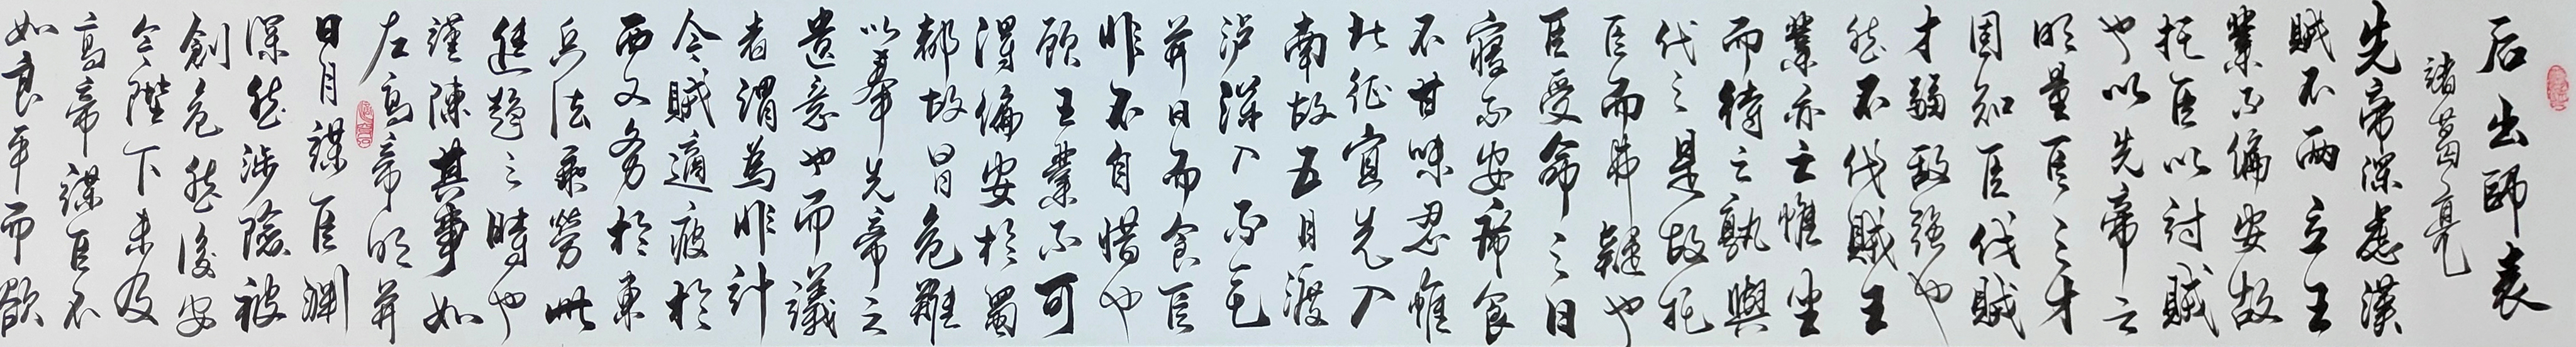 后出師表
諸葛亮
先帝深慮漢
賊不兩立王
業不偏安故
托臣以討賊
也以先帝之
明量臣之才
固知臣伐賊
才弱敵強也
然不伐賊王
業亦亡惟坐
而待亡孰與
伐之是故托
臣而弗疑也
臣受命之日
寢不安席食
不甘味思惟
北征宜先入
南故五月渡
泸深入不毛
并日而食臣
非不自惜也
顧王業不可
得偏安於蜀
都故冒危難
以奉先帝之
遺意也而議
者謂為非計
今賊適疲於
西又務於東
兵法乘勞此
進趨之時也
謹陳其事如
左高帝明并
日月謀臣淵
深然涉險被
創危然後安
今陛下未及
高帝謀臣不
如良平而欲